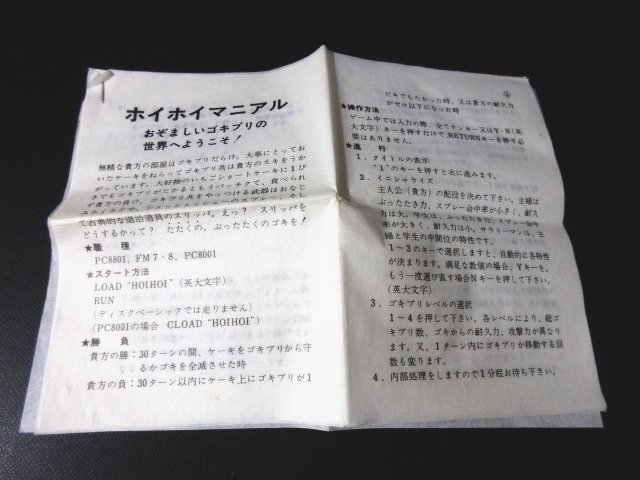 ホイホイマニアル
おぞましいゴキブリの
世界へようこそ!
無精な貴方の部屋はゴキブリだらけ。大事にとってお
いたケーキをねらってゴキブリ共は貴方のスキをうか
がっています。大好物のいちごショートケーキに1ぴ
きでもゴキブリがたかるともうバッチクて、食べられ
ず貴方の負け。ゴキブリ共をやっつける武器はおなじ
て古典的な退治道具のスリッパ。えっ? スリッパを
どうするかって? たたくの。ぶったたくのゴキを!
★職 種
PC8801, FM7・8, PC8001
★スタート方法
LOAD "HOIHOI" (英大文字)
RUN
(ディスクベーシックでは走りません)
(PC8001の場合 CLOAD "HOIHOI")
★勝 負
貴方の勝:30ターンの間、ケーキをゴキブリから守
るかゴキを全滅させた時
貴方の負:30ターン以内にケーキ上にゴキブリが1
①
ピキでもたかった時、又は貴方の耐久力
がゼロ以下になった時
★操作方法
ゲーム中では入力の際、全てテンキー又はY・N(英
大文字)キーを押すだけで、RETURNキーを押す必
要はありません。
★進 行
1.タイトルの表示
"1"のキーを押すと次に進みます。
2.イニシャライズ
主人公(貴方)の配役を決めて下さい。主婦は
ぶったたき力、スプレー命中率が小さく、耐久
力は大。学生は、ぶったたき力、スプレー命中
率が大きく、耐久力は小。サラリーマンは、主
婦と学生の中間位の特性です。
1~3のキーで選択しますと、自動的に各特性
が決まります。満足な数値の場合、Yキーを。
もう一度選び直す場合Nキーを押して下さい。
(英大文字)
3.ゴキブリレベルの選択
1~4を押して下さい。各レベルにより、総ゴ
キブリ数、ゴキからの耐久力、攻撃力が異なり
ます。又、1ターン内にゴキブリが移動する回
数も変ります。
4.内部処理をしますので1分程お待ち下さい。